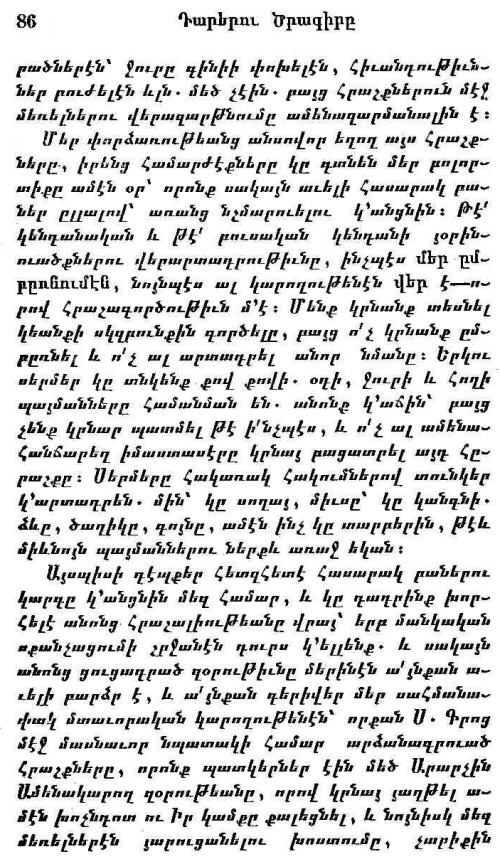 86 Դարերու Ծրագիրը
րածներէն՝ ջուրը գինիի փոխելէն, հիւանդութիւն-
ներ բուժելէն ևլն. մեծ չէին. բայց հրաշքներուն մէջ
մեռելներու վերազարթնումը ամենազարմանալին է։
Մեր փորձառութեանց անսովոր եղող այս հրաշք-
ները, իրենց համարժէքները կը գտնեն մեր բոլոր-
տիքը ամէն օր՝ որոնք սակայն աւելի հասարակ բա-
ներ ըլլալով՝ առանց նշմարուելու կ՚անցնին։ Թէ՛
կենդանական և թէ՛ բուսական կենդանի յօրին-
ուածքներու վերարտադրութիւնը, ինչպէս մեր ըմ-
բըռնումէն, նոյնպէս ալ կարողութենէն վեր է—ո-
րով հրաշագործութիւն մ՚է։ Մենք կրնանք տեսնել
կեանքի սկզբունքին գործելը, բայց ո՛չ կրնանք ըմ-
բըռնել և ո՛չ ալ արտադրել անոր նմանը։ Երկու
սերմեր կը տնկենք քով քովի. օդի, ջուրի և հողի
պայմանները համանման են. անոնք կ՚աճին՝ բայց
չենք կրնար պատմել թէ ի՛նչպէս, և ո՛չ ալ ամենա-
հանճարեղ իմաստասէրը կրնայ բացատրել այդ հը-
րաշքը։ Սերմերը հակառակ հակումներով տունկեր
կ՚արտադրեն. մին՝ կը սողայ, միւսը՝ կը կանգնի.
ձևը, ծաղիկը, գոյնը, ամէն ինչ կը տարբերին, թէև
միևնոյն պայմաններու ներքև առաջ եկան։
Այսպիսի դէպքեր հետզհետէ հասարակ բաներու
կարգը կ՚անցնին մեզ համար, և կը դադրինք խոր-
հելէ անոնց հրաշալիութեանը վրայ՝ երբ մանկական
սքանչացումի շրջանէն դուրս կ՚ելլենք. և սակայն
անոնց ցուցադրած զօրութիւնը մերինէն ա՛յնքան ա-
ւելի բարձր է, և ա՛յնքան գերիվեր մեր սահմանա-
փակ մտաւորական կարողութենէն՝ որքան Ս. Գրոց
մէջ մասնաւոր նպատակի համար արձանագրուած
հրաշքները, որոնք պատկերներ էին մեծ Արարչին
Ամենակարող զօրութեանը, որով կրնայ յաղթել ա-
մէն խոչնդոտ ու Իր կամքը քալեցնել, և նոյնիսկ մեզ
մեռելներէն յարուցանելու խոստումը, չարիքին